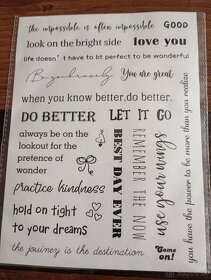 the impossible is often impossible GOOD
look on the bright side love you
life doesn't have to bt perfect to be wonderful
Be goodviously You are great
when you know better,do better.
DO BETTER LET IT GO
always be on the
lookout for the
pretence of
wonder
practice kindness
hold on tight
to your dreams
the journey is the destination
BEST DAY EVER
REMEMBER THE NOW
use your wings
you have the power to be more than you realize
Come
on!